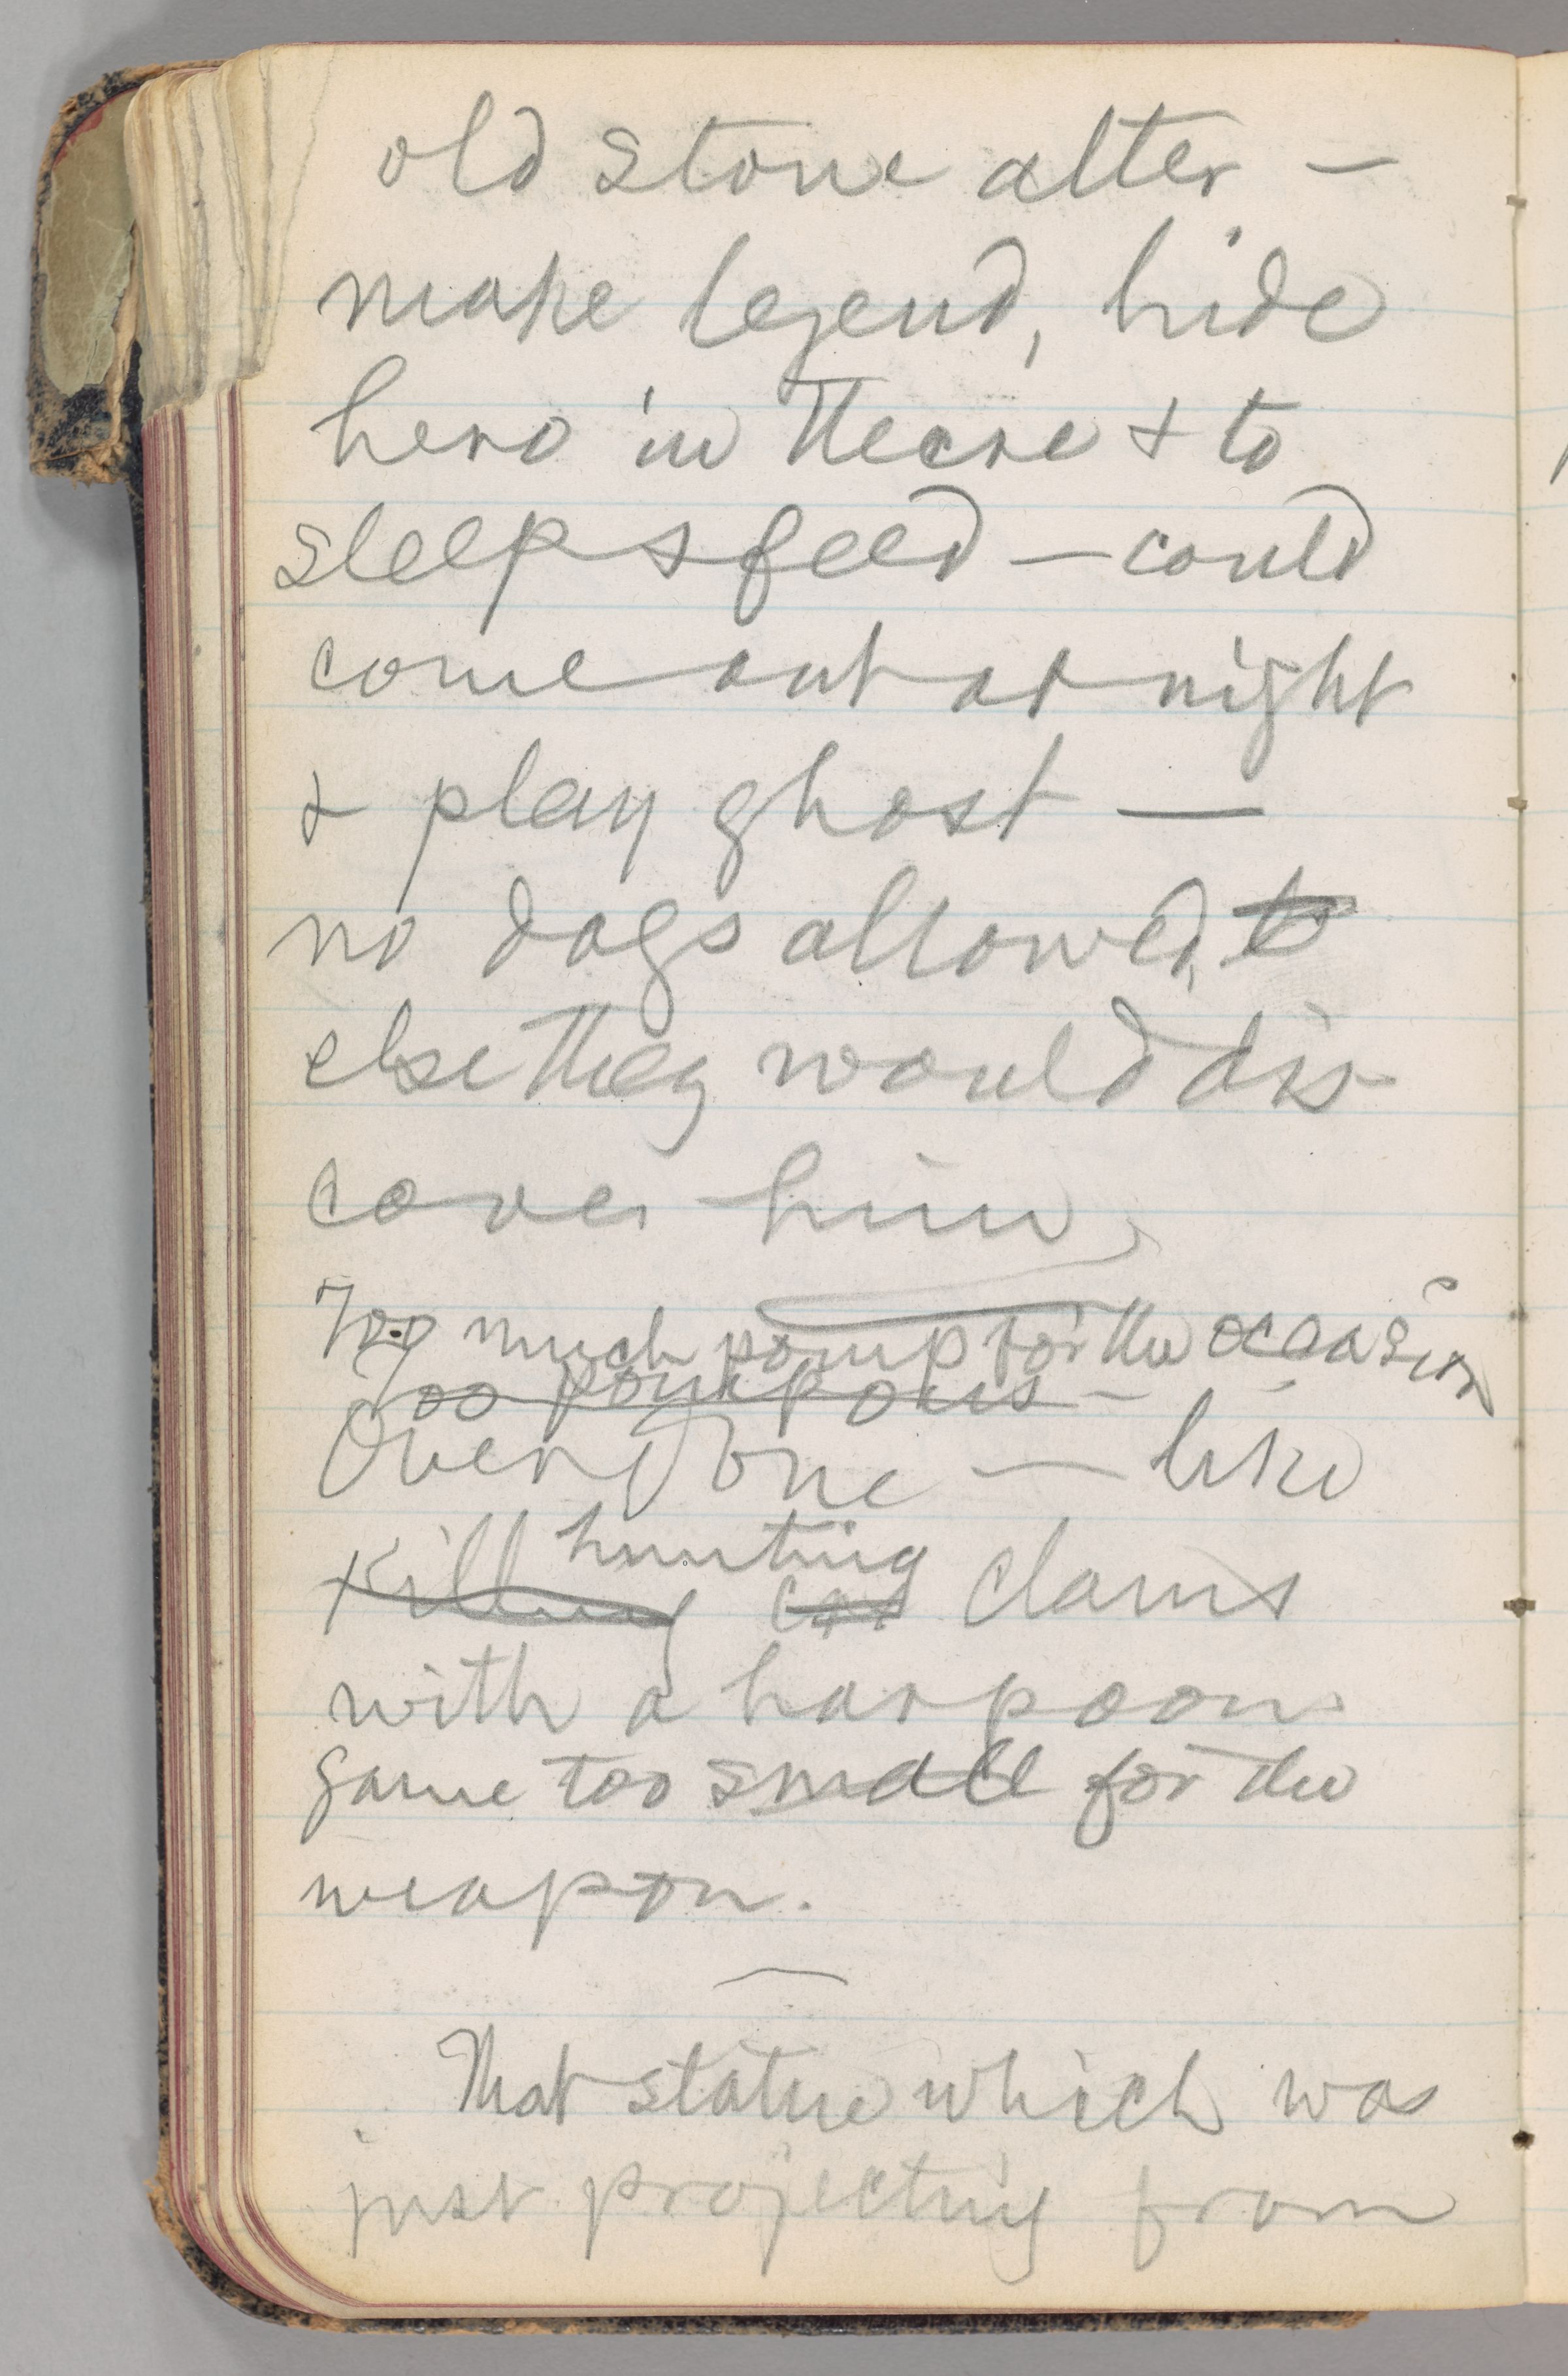 old stone alter —
make legend, hide
hero in there & to
sleep & feed — could
come out at night
& play ghost —
no dogs allowed, to
else they would dis-
cover him.
Too much pomp for the occasion
Too pompous —
Overdone — like
hunting
Killing clams
with a harpoon
game too small for the
weapon.
—
That statue which was
just projecting from